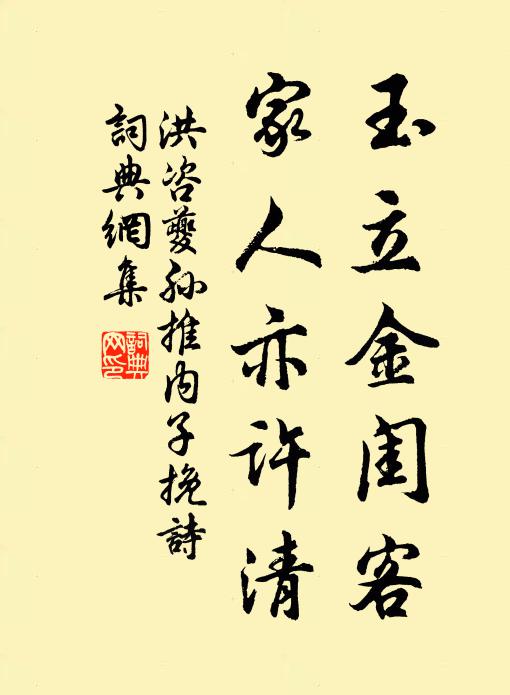 玉立金閨客
家人亦許清
洪咨夔孙推内子挽詩
詞典網集
詞典
网印